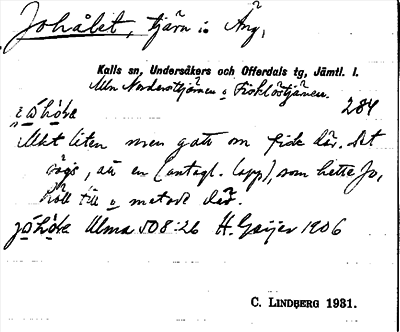 Johålet, tjärn i Äng,
Kalls sn, Undersåkers och Offerdals tg, Jämtl. l.
Mln Nordersttjärnen o Fisklöstjärnen.
284
Mkt liten men gott om fisk där. Det
sägs, att en (antagl. lapp), som hette Jo,
höll till o metade där.
Ulma 508:26 H. Geijer 1906
C. LINDBERG 1931.